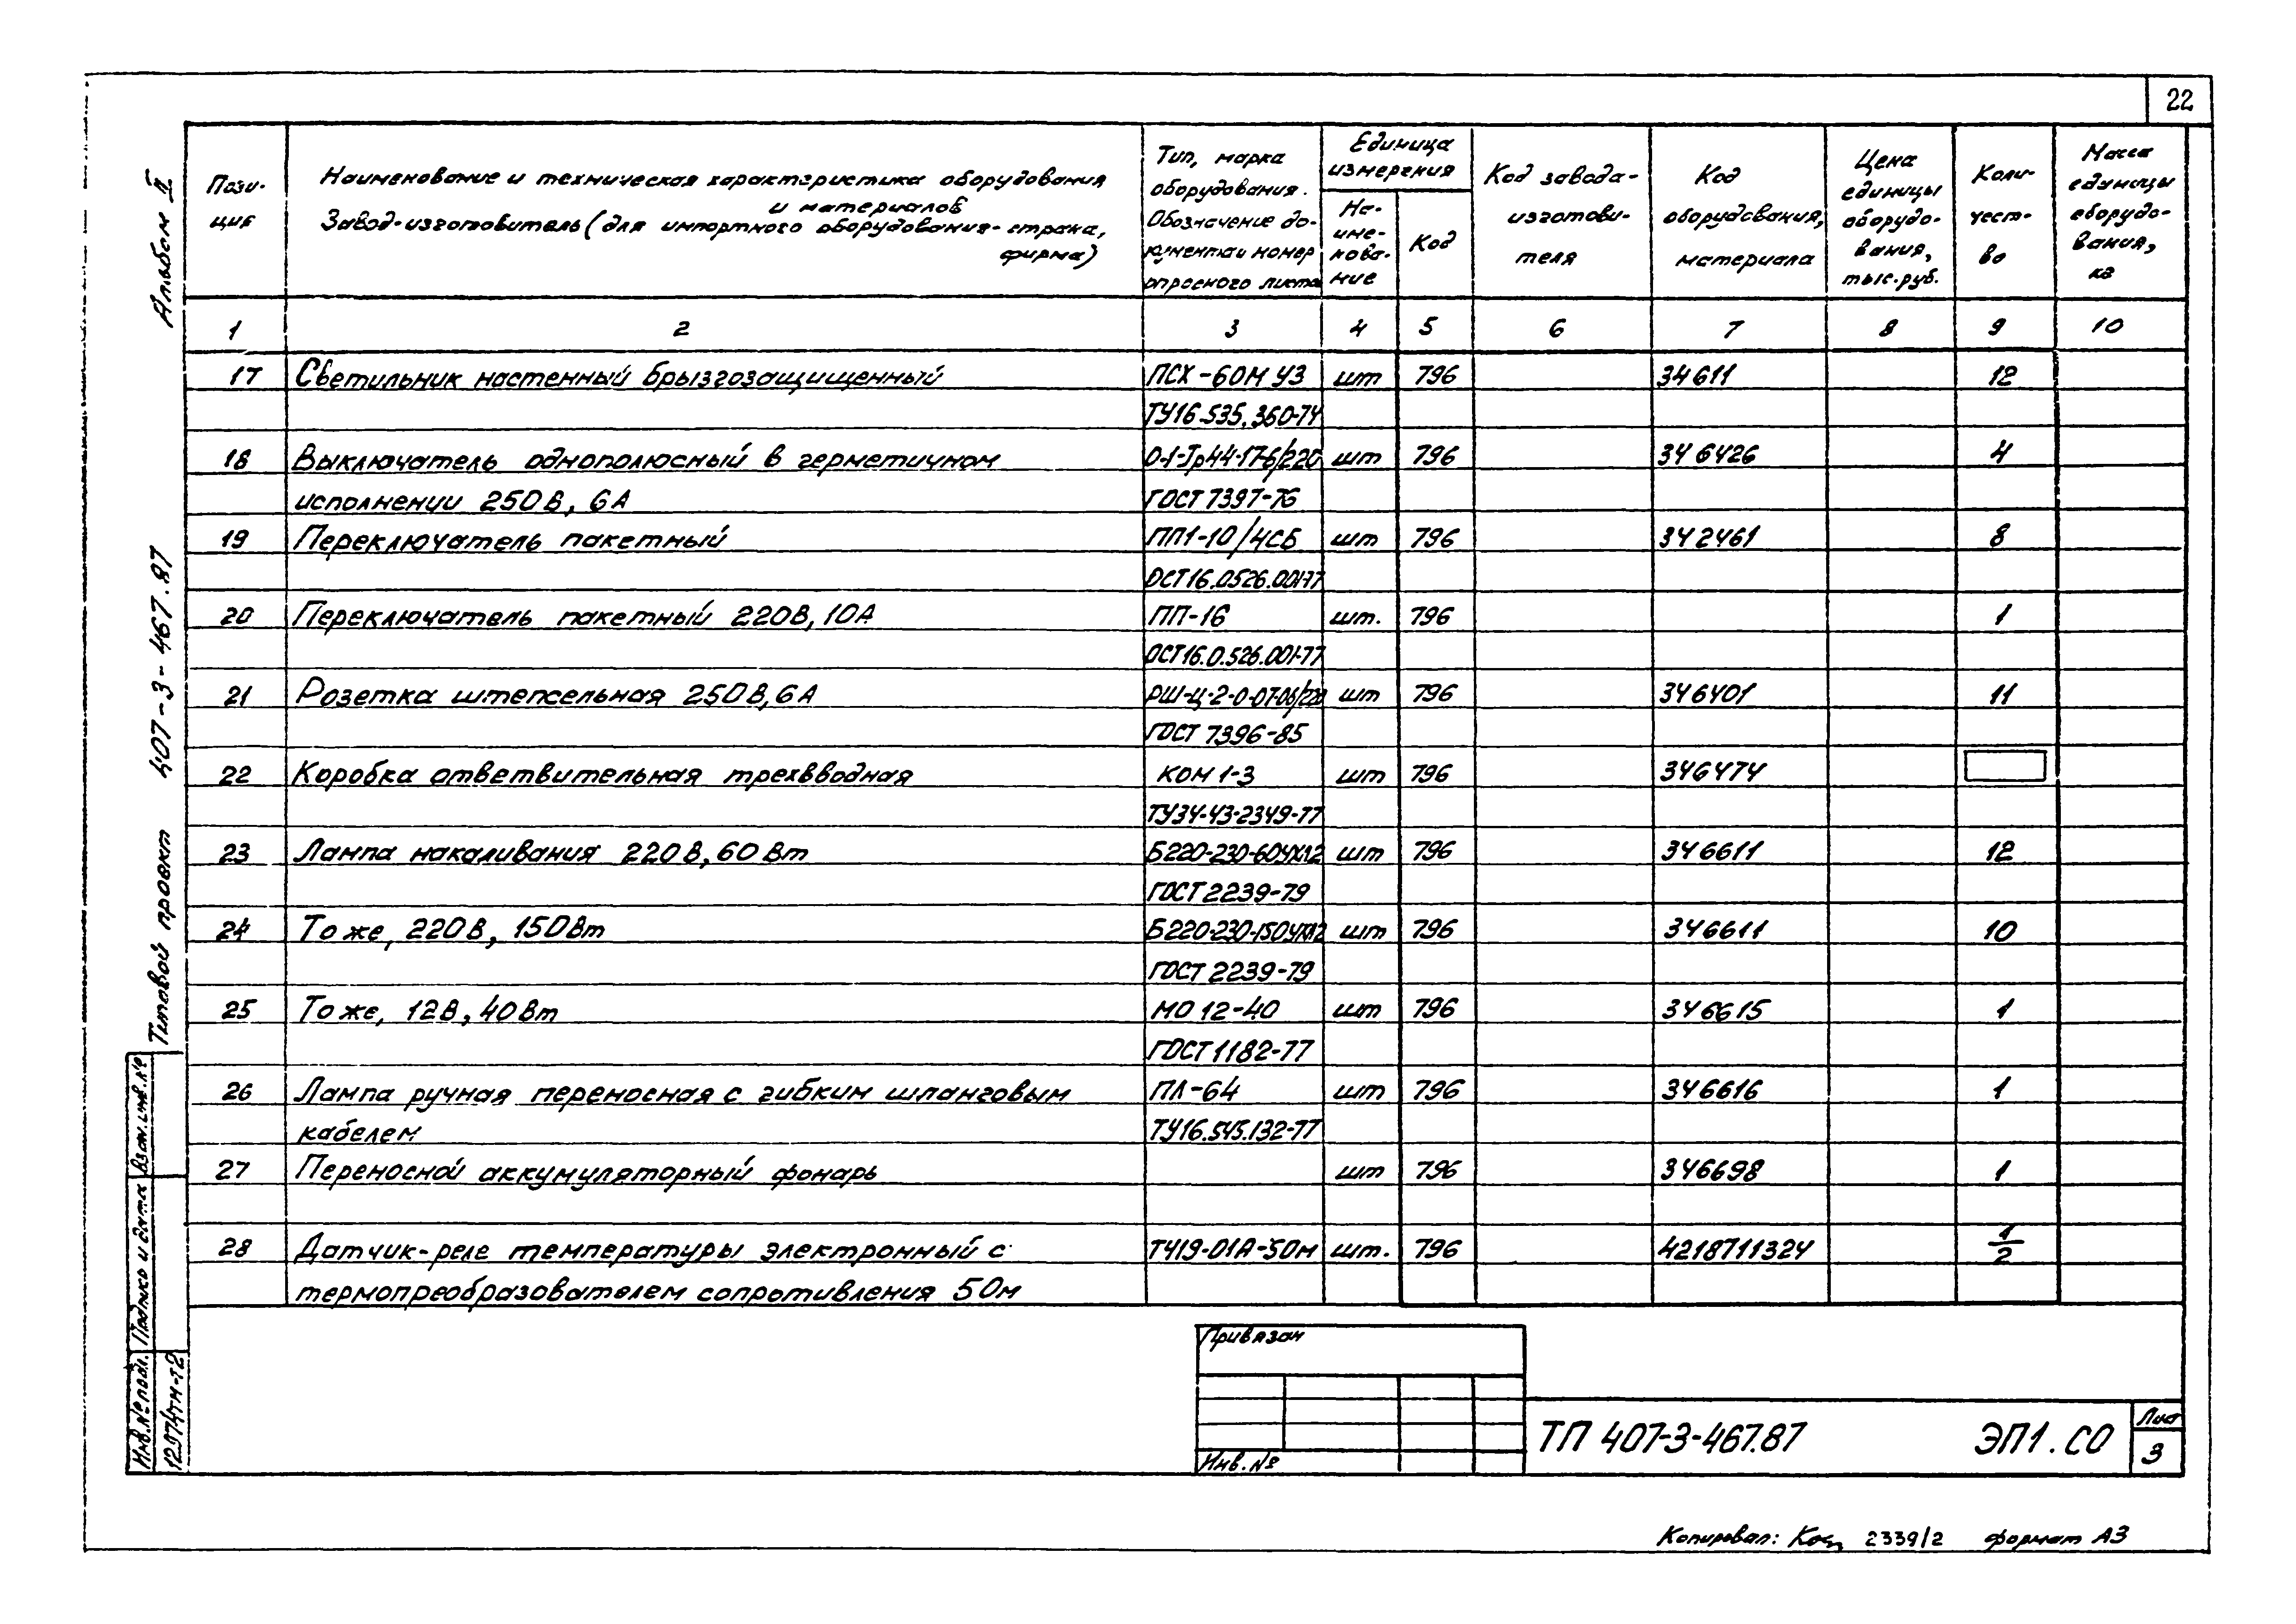 22
Альбом II
Типовой проект 407-3-467.87
Взам. инв. №
Подпись и дата
Инв. № подл.
12974тм-т2
Пози-
ция
Наименование и техническая характеристика оборудования
и материалов
Завод-изготовитель (для импортного оборудования-страна,
фирма)
Тип, марка
оборудования.
Обозначение до-
кумента и номер
опросного листа
Единица
измерения
На-
име-
нова-
ние
Код
Код завода-
изготови-
теля
Код
оборудования,
материала
Цена
единицы
оборудо-
вания,
тыс.руб.
Коли-
чест-
во
Масса
единицы
оборудо-
вания,
кг
1 2 3 4 5 6 7 8 9 10
17 Светильник настенный брызгозащищенный ПСХ-60М У3 шт 796 34611 12
ТУ16-535.360-74
18 Выключатель однополюсный в герметичном О-1-Ip44-17-6/220 шт 796 346426 4
исполнении 250В, 6А ГОСТ 7397-76
19 Переключатель пакетный ПП1-10/4СБ шт 796 342461 8
ОСТ16.0526.001-77
20 Переключатель пакетный 220В, 10А ПП-16 шт. 796 1
ОСТ16.0.526.001-77
21 Розетка штепсельная 250В, 6А РШ-Ц-2-0-07-06/220 шт 796 346401 11
ГОСТ 7396-85
22 Коробка ответвительная трехвводная КОМ 1-3 шт 796 346474
ТУ34-43-2349-77
23 Лампа накаливания 220В, 60Вт Б220-230-60УХЛ2 шт 796 346611 12
ГОСТ 2239-79
24 То же, 220В, 150Вт Б220-230-150УХЛ2 шт 796 346611 10
ГОСТ 2239-79
25 То же, 12В, 40Вт МО 12-40 шт 796 346615 1
ГОСТ 1182-77
26 Лампа ручная переносная с гибким шланговым ПЛ-64 шт 796 346616 1
кабелем ТУ16.545.132-77
27 Переносной аккумуляторный фонарь шт 796 346698 1
28 Датчик-реле температуры электронный с ТЧ19-01А-50м шт. 796 4218711324 1/2
термопреобразователем сопротивления 50м
Привязан
Инв. №
ТП 407-3-467.87 ЭП1.СО
Лист
3
Копировал: 2339/2 формат А3